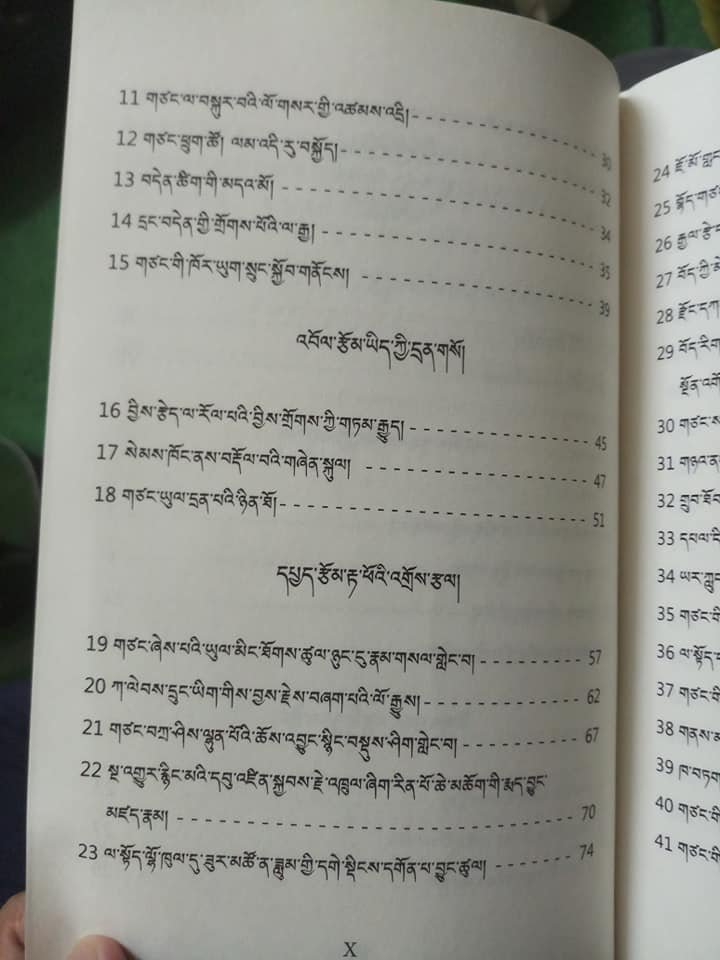 11 གཙང་ལ་བསྐུར་བའི་ལོ་གསར་གྱི་འཚམས་འདྲི། 30
12 གཙང་ཕྲུག་ཚོ། ལམ་འདི་རུ་བསྐྱོད། 32
13 བདེན་ཚིག་གི་མདའ་མོ། 34
14 དྲང་བདེན་གྱི་གྲོགས་པོའི་ལ་རྒྱ། 35
15 གཙང་གི་ཁོར་ཡུག་སྲུང་སྐྱོབ་གནོངས། 39
འབོལ་རྩོམ་ཡིད་ཀྱི་དྲན་གསོ།
16 བྱིས་རྩེད་ལ་རོལ་པའི་བྱིས་གྲོགས་ཀྱི་གཏམ་རྒྱུད། 45
17 སེམས་ཁོང་ནས་བརྡོལ་བའི་གཞེན་སྐུལ། 47
18 གཙང་ཡུལ་དྲན་པའི་ཉིན་ཐོ། 51
དཔྱད་རྩོམ་རྟ་ཕོའི་འགྲོས་རྩལ།
19 གཙང་ཞེས་པའི་ཡུལ་མིང་ཐོགས་ཚུལ་ཉུང་ངུ་རྣམ་གསལ་གླེང་བ། 57
20 ཀ་ལེབས་དྲུང་ཡིག་གིས་བྱས་རྗེས་བཞག་པའི་ལོ་རྒྱུས། 62
21 གཙང་བཀྲ་ཤིས་ལྷུན་པོའི་ཆོས་འབྱུང་སྙིང་བསྡུས་ཤིག་གླེང་བ། 67
22 སྔ་འགྱུར་རྙིང་མའི་དབུ་འཛིན་སྐྱབས་རྗེ་འཁྲུལ་ཞིག་རིན་པོ་ཆེ་མཆོག་གི་མད་བྱུང་
མཛད་རྣམ། 70
23 ལ་སྟོད་ལྷོ་ཁུལ་དུ་ཟུར་མཚོ་ན་ཟླུམ་གྱི་དགེ་སྡིངས་དགོན་པ་བྱུང་ཚུལ། 74
X
24 རྗོ་མོ་
25 སྟོད་གཙང
26 རྒྱལ་རྩེ་
27 བོད་ཀྱི་
28 རྫོང་དཀ
29 བོད་རིག
སྔོན་འགྲོ
30 གཙང་ས
31 གཉལ་ན
32 གྲུབ་ཐོབ
33 དཔལ་
34 ཡར་ཀླུང
35 གཙང་གི
36 ལ་སྟོད་
37 གཙང་གི
38 གནས་མ
39 ཁ་བཏག
40 གཙང་གི
41 གཙང་གི